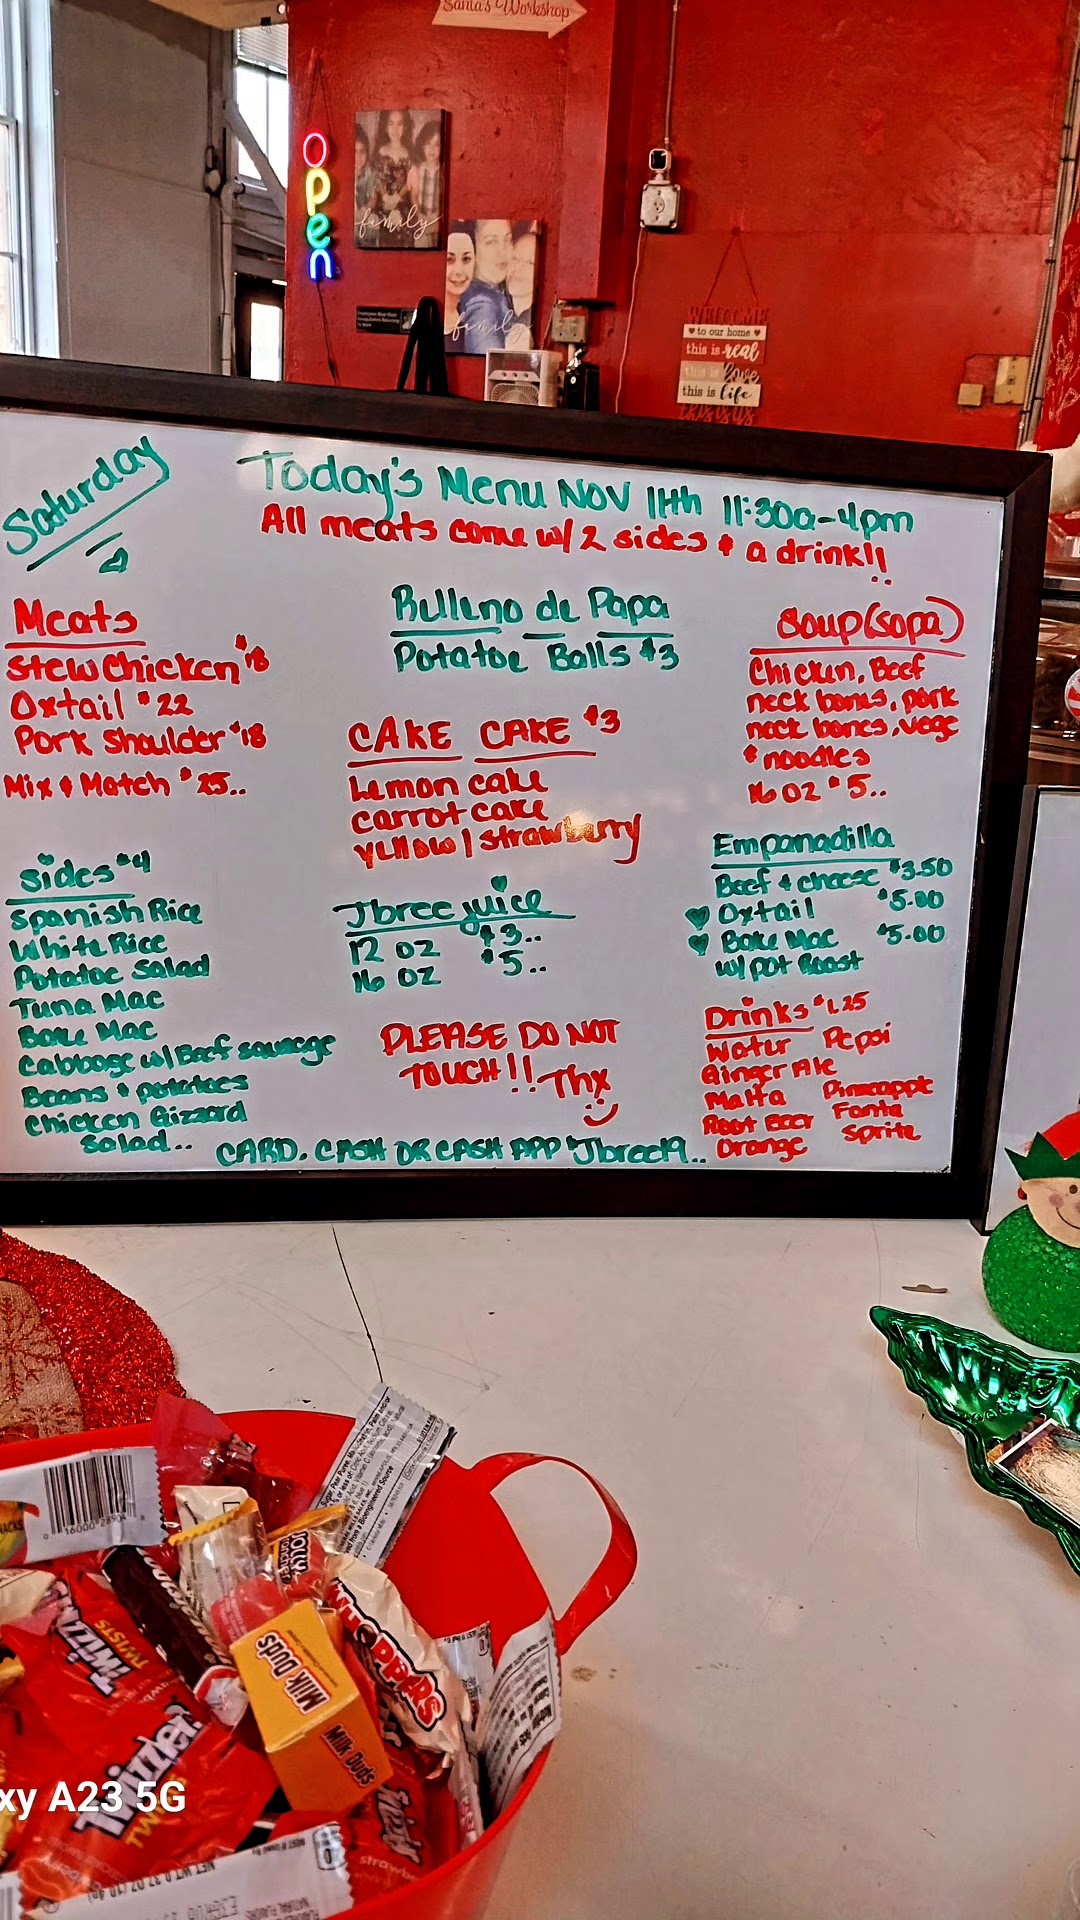 Santa's Workshop
open
family
family
WELCOME
to our home
this is real
this is love
this is life
this is us
Saturday
Today's Menu Nov 11th 11:30a-4pm
All meats come w/ 2 sides & a drink!!
Meats
Stew Chicken $18
Oxtail $22
Pork Shoulder $18
Mix & Match $25..
Sides $4
Spanish Rice
White Rice
Potatoe Salad
Tuna Mac
Bake Mac
Cabbage w/ Beef sausage
Beans & potatoes
Chicken Gizzard
Salad..
Rulleno de Papa
Potatoe Balls $3
CAKE CAKE $3
Lemon cake
carrot cake
Yellow / strawberry
Jbree juice
12 oz $3..
16 oz $5..
PLEASE DO NOT
TOUCH!! Thx
Soup (Sopa)
Chicken, Beef
neck bones, pork
neck bones, vege
& noodles
16 oz $5..
Empanadilla
Beef & cheese $3.50
Oxtail $5.00
Bake Mac $5.00
w/ pot Roast
Drinks $1.25
Water Pepsi
Ginger Ale
Malta Pineapple
Root Beer Fanta
Orange Sprite
CARD, CASH OR CASH APP $Jbree19..
0 16000 28904 8
JOLLY
WHOPPERS
Twizzlers
TWISTS
Milk Duds
Milk Duds
Twizzlers
NET WT 0.37 OZ (10.4g)
xy A23 5G